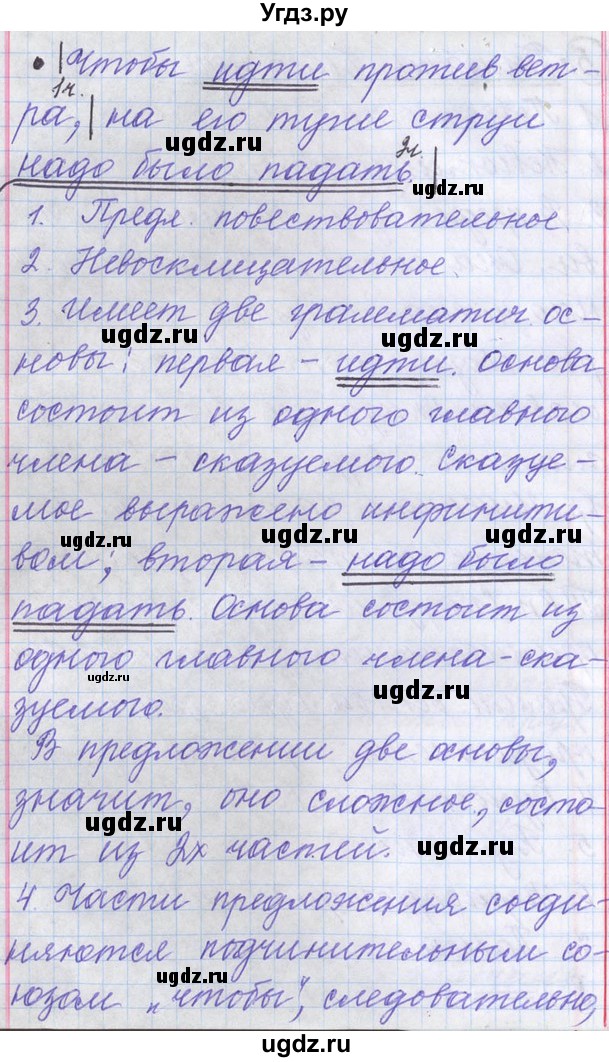 Угдз.ру
• | Чтобы идти против вет-
1ч.
ра, | на его тугие струи
2ч.
надо было падать. |
1. Предл. повествовательное
2. Невосклицательное.
3. Имеет две грамматич. ос-
новы: первая – идти. Основа
состоит из одного главного
члена – сказуемого. Сказуе-
мое выражено инфинити-
вом; вторая – надо было
падать. Основа состоит из
одного главного члена – ска-
зуемого.
В предложении две основы,
значит, оно сложное, состо-
ит из 2х частей.
4. Части предложения соеди-
няются подчинительным со-
юзом „чтобы", следовательно,
ugdz.ru
ugdz.ru
ugdz.ru
ugdz.ru
ugdz.ru
ugdz.ru
ugdz.ru
ugdz.ru
ugdz.ru
ugdz.ru
ugdz.ru
ugdz.ru
ugdz.ru